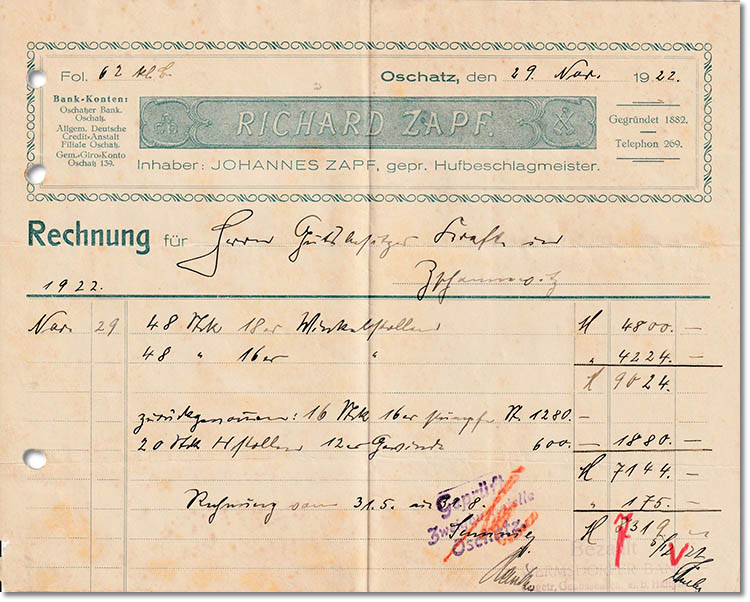 Fol. 62
Oschatz, den 29. Nov. 1922.
Bank-Konten:
Oschatzer Bank.
Oschatz.
Allgem. Deutsche
Credit-Anstalt
Filiale Oschatz.
Gem.-Giro-Konto
Oschatz 139.
RICHARD ZAPF.
Gegründet 1882.
Telephon 269.
Inhaber: JOHANNES ZAPF, gepr. Hufbeschlagmeister.
Rechnung für Herrn Gutsbesitzer Kraft in
1922.
Nov. 29 48 Stck 18er Winkelstollen M 4800. —
48 " 16er " " 4224. —
M 9024.
zurückgenommen: 16 Stck 16er stumpfe M 1280. —
20 Stck H Stollen 12er Gewinde 600. — 1880. —
M 7144. —
Rechnung vom 31.5. " 175. —
M 7319. —
Geprüft
Oschatz
Bezahlt
7 V